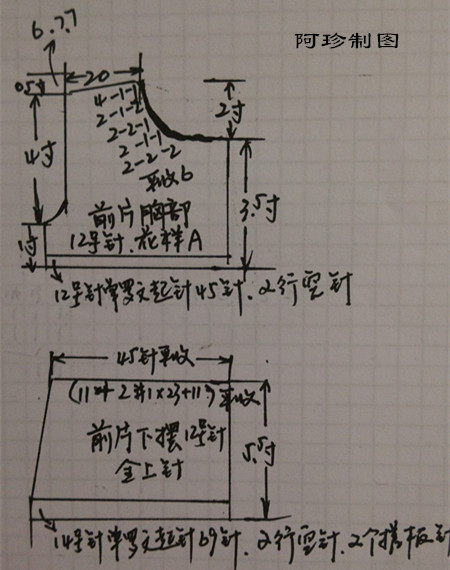 阿珍制图
6.7.7
0.5寸
20
4-1-1
2-1-2
2-2-1
2-1-1
2-2-2
平收6
2寸
4寸
3.5寸
前片胸部
12号针.花样A
1寸
12号针单罗文起针45针.2行空针
45针平收
平收
前片下摆12号针
全上针
5.5寸
14号针单罗文起针69针.2行空针.2个搭板针